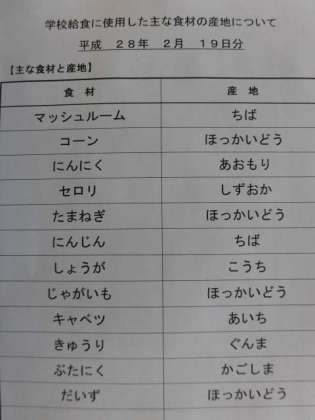 学校給食に使用した主な食材の産地について
平成　２８年　２月　１９日分
【主な食材と産地】
食　材　産　地
マッシュルーム　ちば
コーン　ほっかいどう
にんにく　あおもり
セロリ　しずおか
たまねぎ　ほっかいどう
にんじん　ちば
しょうが　こうち
じゃがいも　ほっかいどう
キャベツ　あいち
きゅうり　ぐんま
ぶたにく　かごしま
だいず　ほっかいどう